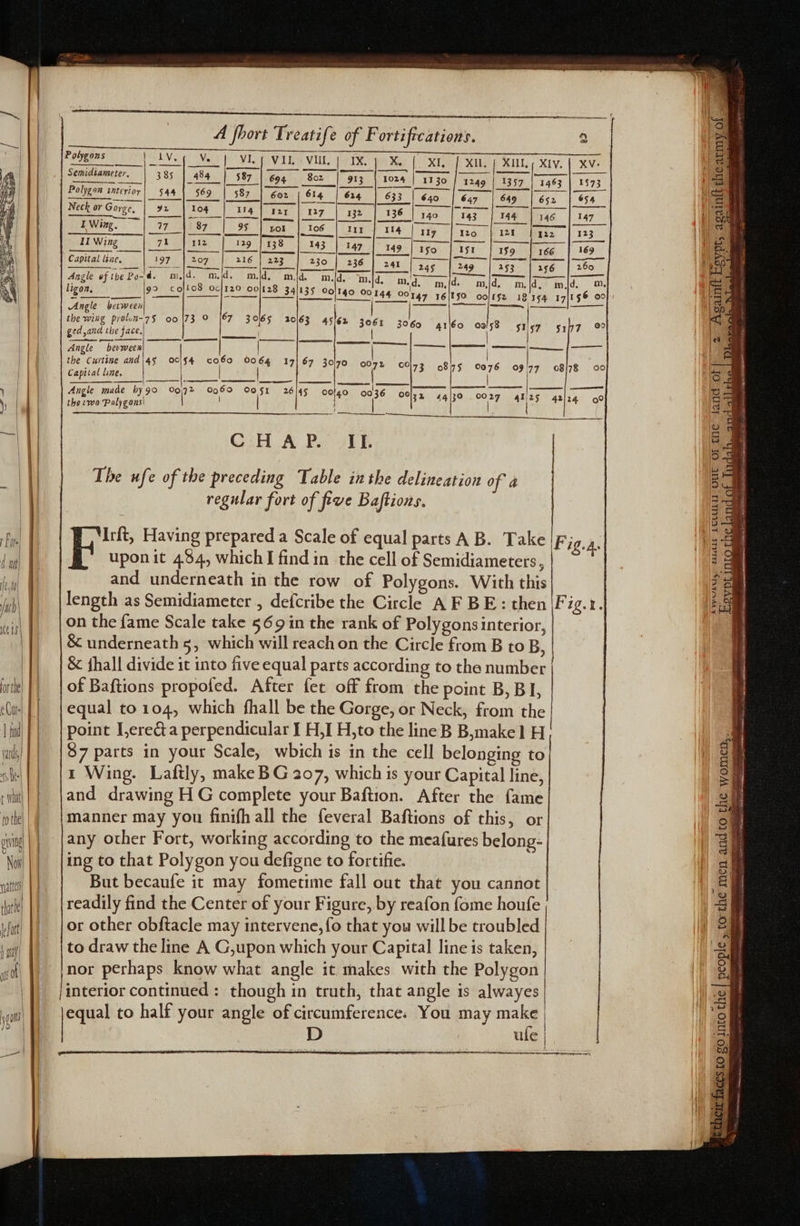 A ſhort Treatiſe of Fortifications. 2
Polygons | IV. | V. | VI. | VII. | VIII. | IX. | X. | XI. | XII. | XIII. | XIV. | XV.
Semidiameter. | 385 | 484 | 587 | 694 | 802 | 913 | 1024 | 1130 | 1249 | 1357 | 1463 | 1573
Polygon interior | 544 | 569 | 587 | 602 | 614 | 624 | 633 | 640 | 647 | 649 | 652 | 654
Neck or Gorge, | 92 | 104 | 114 | 121 | 127 | 132 | 136 | 140 | 143 | 144 | 146 | 147
I Wing. | 77 | 87 | 95 | 101 | 106 | 111 | 114 | 117 | 120 | 121 | 122 | 123
II Wing | 71 | 112 | 129 | 138 | 143 | 147 | 149 | 150 | 151 | 159 | 166 | 169
Capital line, | 197 | 207 | 216 | 223 | 230 | 236 | 241 | 245 | 249 | 253 | 256 | 260
Angle of the Po- | d. m. | d. m. | d. m. | d. m. | d. m. | d. m. | d. m. | d. m. | d. m. | d. m. | d. m. | d. m.
ligon. | 90 00 | 108 00 | 120 00 | 128 34 | 135 00 | 140 00 | 144 00 | 147 16 | 150 00 | 152 18 | 154 17 | 156 00
Angle between
the wing prolon- | 75 00 | 73 0 | 67 30 | 65 20 | 63 45 | 62 30 | 61 30 | 60 41 | 60 00 | 58 51 | 57 51 | 77 00
ged, and the face.
Angle between
the Curtine and | 45 00 | 54 00 | 60 00 | 64 17 | 67 30 | 70 00 | 72 00 | 73 08 | 75 00 | 76 09 | 77 08 | 78 00
Capital line.
Angle made by | 90 00 | 72 00 | 60 00 | 51 26 | 45 00 | 40 00 | 36 00 | 32 44 | 30 00 | 27 41 | 25 42 | 24 00
the two Polygons
CHAP. II.
The uſe of the preceding Table in the delineation of a
regular fort of five Baſtions.
FIrſt, Having prepared a Scale of equal parts A B. Take Fig.4.
upon it 484, which I find in the cell of Semidiameters,
and underneath in the row of Polygons. With this
length as Semidiameter, deſcribe the Circle A F B E: then Fig.1.
on the ſame Scale take 569 in the rank of Polygons interior,
& underneath 5, which will reach on the Circle from B to B,
& ſhall divide it into five equal parts according to the number
of Baſtions propoſed. After ſet off from the point B, B I,
equal to 104, which ſhall be the Gorge, or Neck, from the
point I, erect a perpendicular I H, I H, to the line B B, make I H
87 parts in your Scale, which is in the cell belonging to
1 Wing. Laſtly, make B G 207, which is your Capital line,
and drawing H G complete your Baſtion. After the ſame
manner may you finiſh all the ſeveral Baſtions of this, or
any other Fort, working according to the meaſures belong-
ing to that Polygon you deſigne to fortifie.
But becauſe it may ſometime fall out that you cannot
readily find the Center of your Figure, by reaſon ſome houſe
or other obſtacle may intervene, ſo that you will be troubled
to draw the line A G, upon which your Capital line is taken,
nor perhaps know what angle it makes with the Polygon
interior continued: though in truth, that angle is alwayes
equal to half your angle of circumference. You may make
D uſe